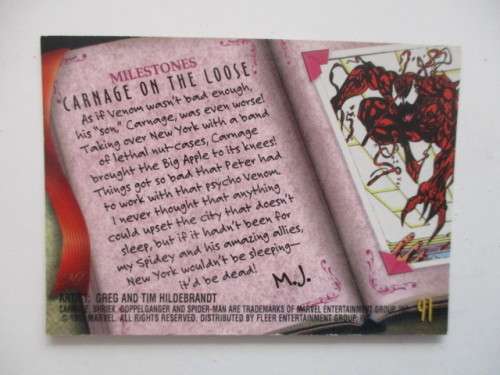 MILESTONES
"CARNAGE ON THE LOOSE
As if Venom wasn't bad enough,
his "son," Carnage, was even worse!
Taking over New York with a band
of lethal nut-cases, Carnage
brought the Big Apple to its knees!
Things got so bad that Peter had
to work with that psycho Venom.
I never thought that anything
could upset the city that doesn't
sleep, but if it hadn't been for
my Spidey and his amazing allies,
New York wouldn't be sleeping—
it'd be dead!
M.J.
ARTIST: GREG AND TIM HILDEBRANDT
CARNAGE, SHRIEK, DOPPELGANGER AND SPIDER-MAN ARE TRADEMARKS OF MARVEL ENTERTAINMENT GROUP, INC.
MARVEL. ALL RIGHTS RESERVED. DISTRIBUTED BY FLEER ENTERTAINMENT GROUP,
91